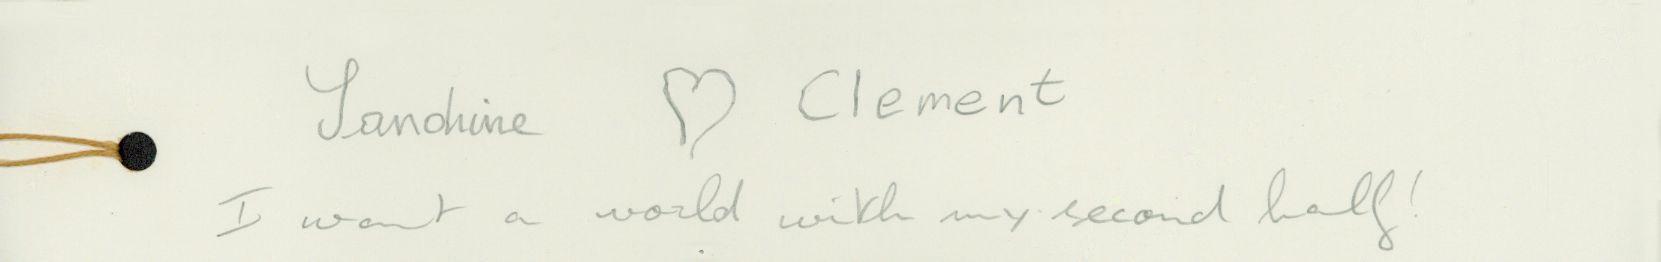 Sandrine ♡ Clement
I want a world with my second half!